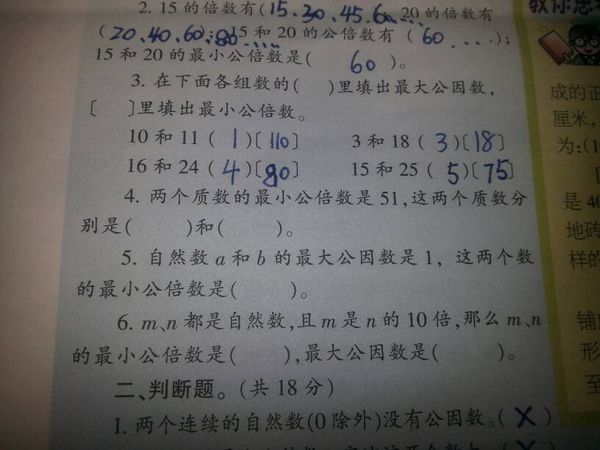 2. 15 的倍数有(15、30、45、60… 20 的倍数有
(20、40、60、80……;15 和 20 的公倍数有 ( 60 …. );
15 和 20 的最小公倍数是( 60 )。
3. 在下面各组数的( )里填出最大公因数,
〔 〕里填出最小公倍数。
10 和 11 ( 1 )〔110〕 3 和 18 ( 3 )〔18〕
16 和 24 ( 4 )〔80〕 15 和 25 ( 5 )〔75〕
4. 两个质数的最小公倍数是 51,这两个质数分
别是( )和( )。
5. 自然数 a 和 b 的最大公因数是 1, 这两个数
的最小公倍数是( )。
6. m、n 都是自然数,且 m 是 n 的 10 倍,那么 m、n
的最小公倍数是( ),最大公因数是( )。
二、判断题。(共 18 分)
1. 两个连续的自然数(0 除外)没有公因数。( X )
教你思
成的正
厘米,
为:(1
是 40
地砖
样的
铺
形
至